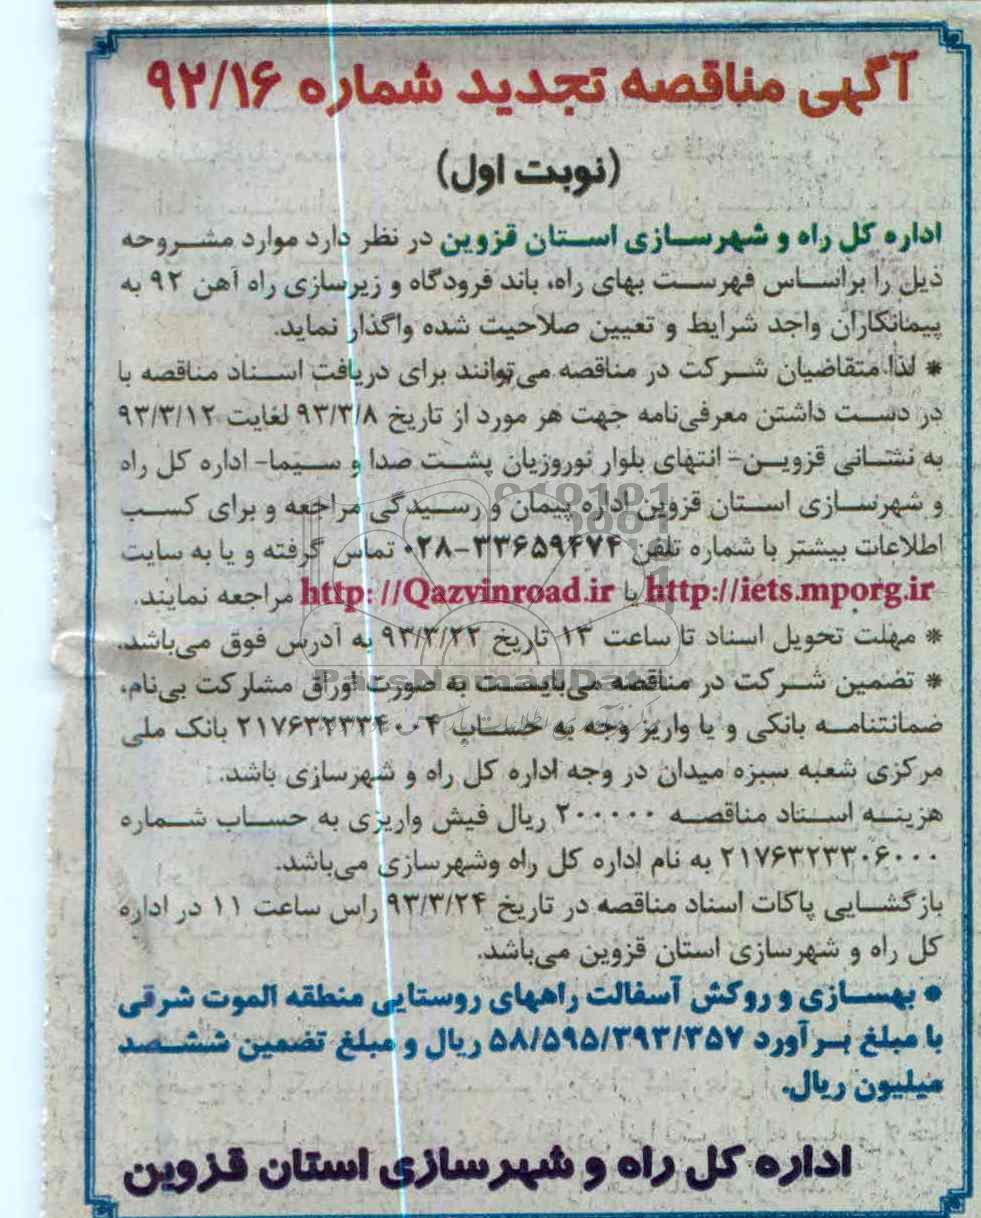 آگهی مناقصه تجدید شماره ۹۲/۱۶
(نوبت اول)
اداره کل راه و شهرسازی استان قزوین در نظر دارد موارد مشروحه
ذیل را براساس فهرست بهای راه، باند فرودگاه و زیرسازی راه آهن ۹۲ به
پیمانکاران واجد شرایط و تعیین صلاحیت شده واگذار نماید.
* لذا متقاضیان شرکت در مناقصه می‌توانند برای دریافت اسناد مناقصه با
در دست داشتن معرفی‌نامه جهت هر مورد از تاریخ ۹۳/۳/۸ لغایت ۹۳/۳/۱۲
به نشانی قزوین- انتهای بلوار نوروزیان پشت صدا و سیما- اداره کل راه
و شهرسازی استان قزوین اداره پیمان و رسیدگی مراجعه و برای کسب
اطلاعات بیشتر با شماره تلفن ۳۳۶۵۹۴۷۴-۰۲۸ تماس گرفته و یا به سایت
http://iets.mporg.ir یا http://Qazvinroad.ir مراجعه نمایند.
* مهلت تحویل اسناد تا ساعت ۱۳ تاریخ ۹۳/۳/۲۲ به آدرس فوق می‌باشد.
* تضمین شرکت در مناقصه می‌بایست به صورت اوراق مشارکت بی‌نام،
ضمانتنامه بانکی و یا واریز وجه به حساب ۲۱۷۶۳۲۳۳۴۰۰۴ بانک ملی
مرکزی شعبه سبزه میدان در وجه اداره کل راه و شهرسازی باشد.
هزینه اسناد مناقصه ۲۰۰۰۰۰ ریال فیش واریزی به حساب شماره
۲۱۷۶۳۲۳۳۰۶۰۰۰ به نام اداره کل راه وشهرسازی می‌باشد.
بازگشایی پاکات اسناد مناقصه در تاریخ ۹۳/۳/۲۴ راس ساعت ۱۱ در اداره
کل راه و شهرسازی استان قزوین می‌باشد.
• بهسازی و روکش آسفالت راههای روستایی منطقه الموت شرقی
با مبلغ برآورد ۵۸/۵۹۵/۳۹۳/۳۵۷ ریال و مبلغ تضمین ششصد
میلیون ریال.
اداره کل راه و شهرسازی استان قزوین
ParsNamadData